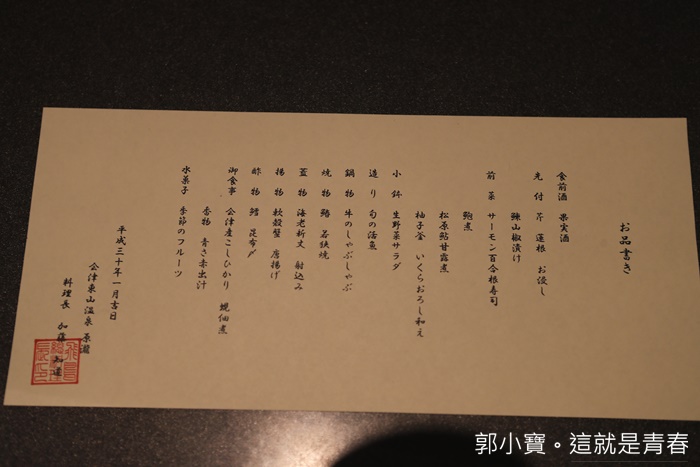 お品書き
食前酒 果実酒
先付 芹 蓮根 お浸し
鰊山椒漬け
前菜 サーモン百合根寿司
鮑煮
松原鮎甘露煮
柚子釜 いくらおろし和え
小鉢 生野菜サラダ
造り 旬の活魚
鍋物 牛のしゃぶしゃぶ
焼物 鰆 若狭焼
蓋物 海老新丈 射込み
揚物 軟殻蟹 唐揚げ
酢物 鱈 昆布〆
御食事 会津産こしひかり 蜆佃煮
香物 青さ赤出汁
水菓子 季節のフルーツ
平成三十年一月吉日
会津東山温泉 原瀧
料理長 加藤
郭小寶。這就是青春